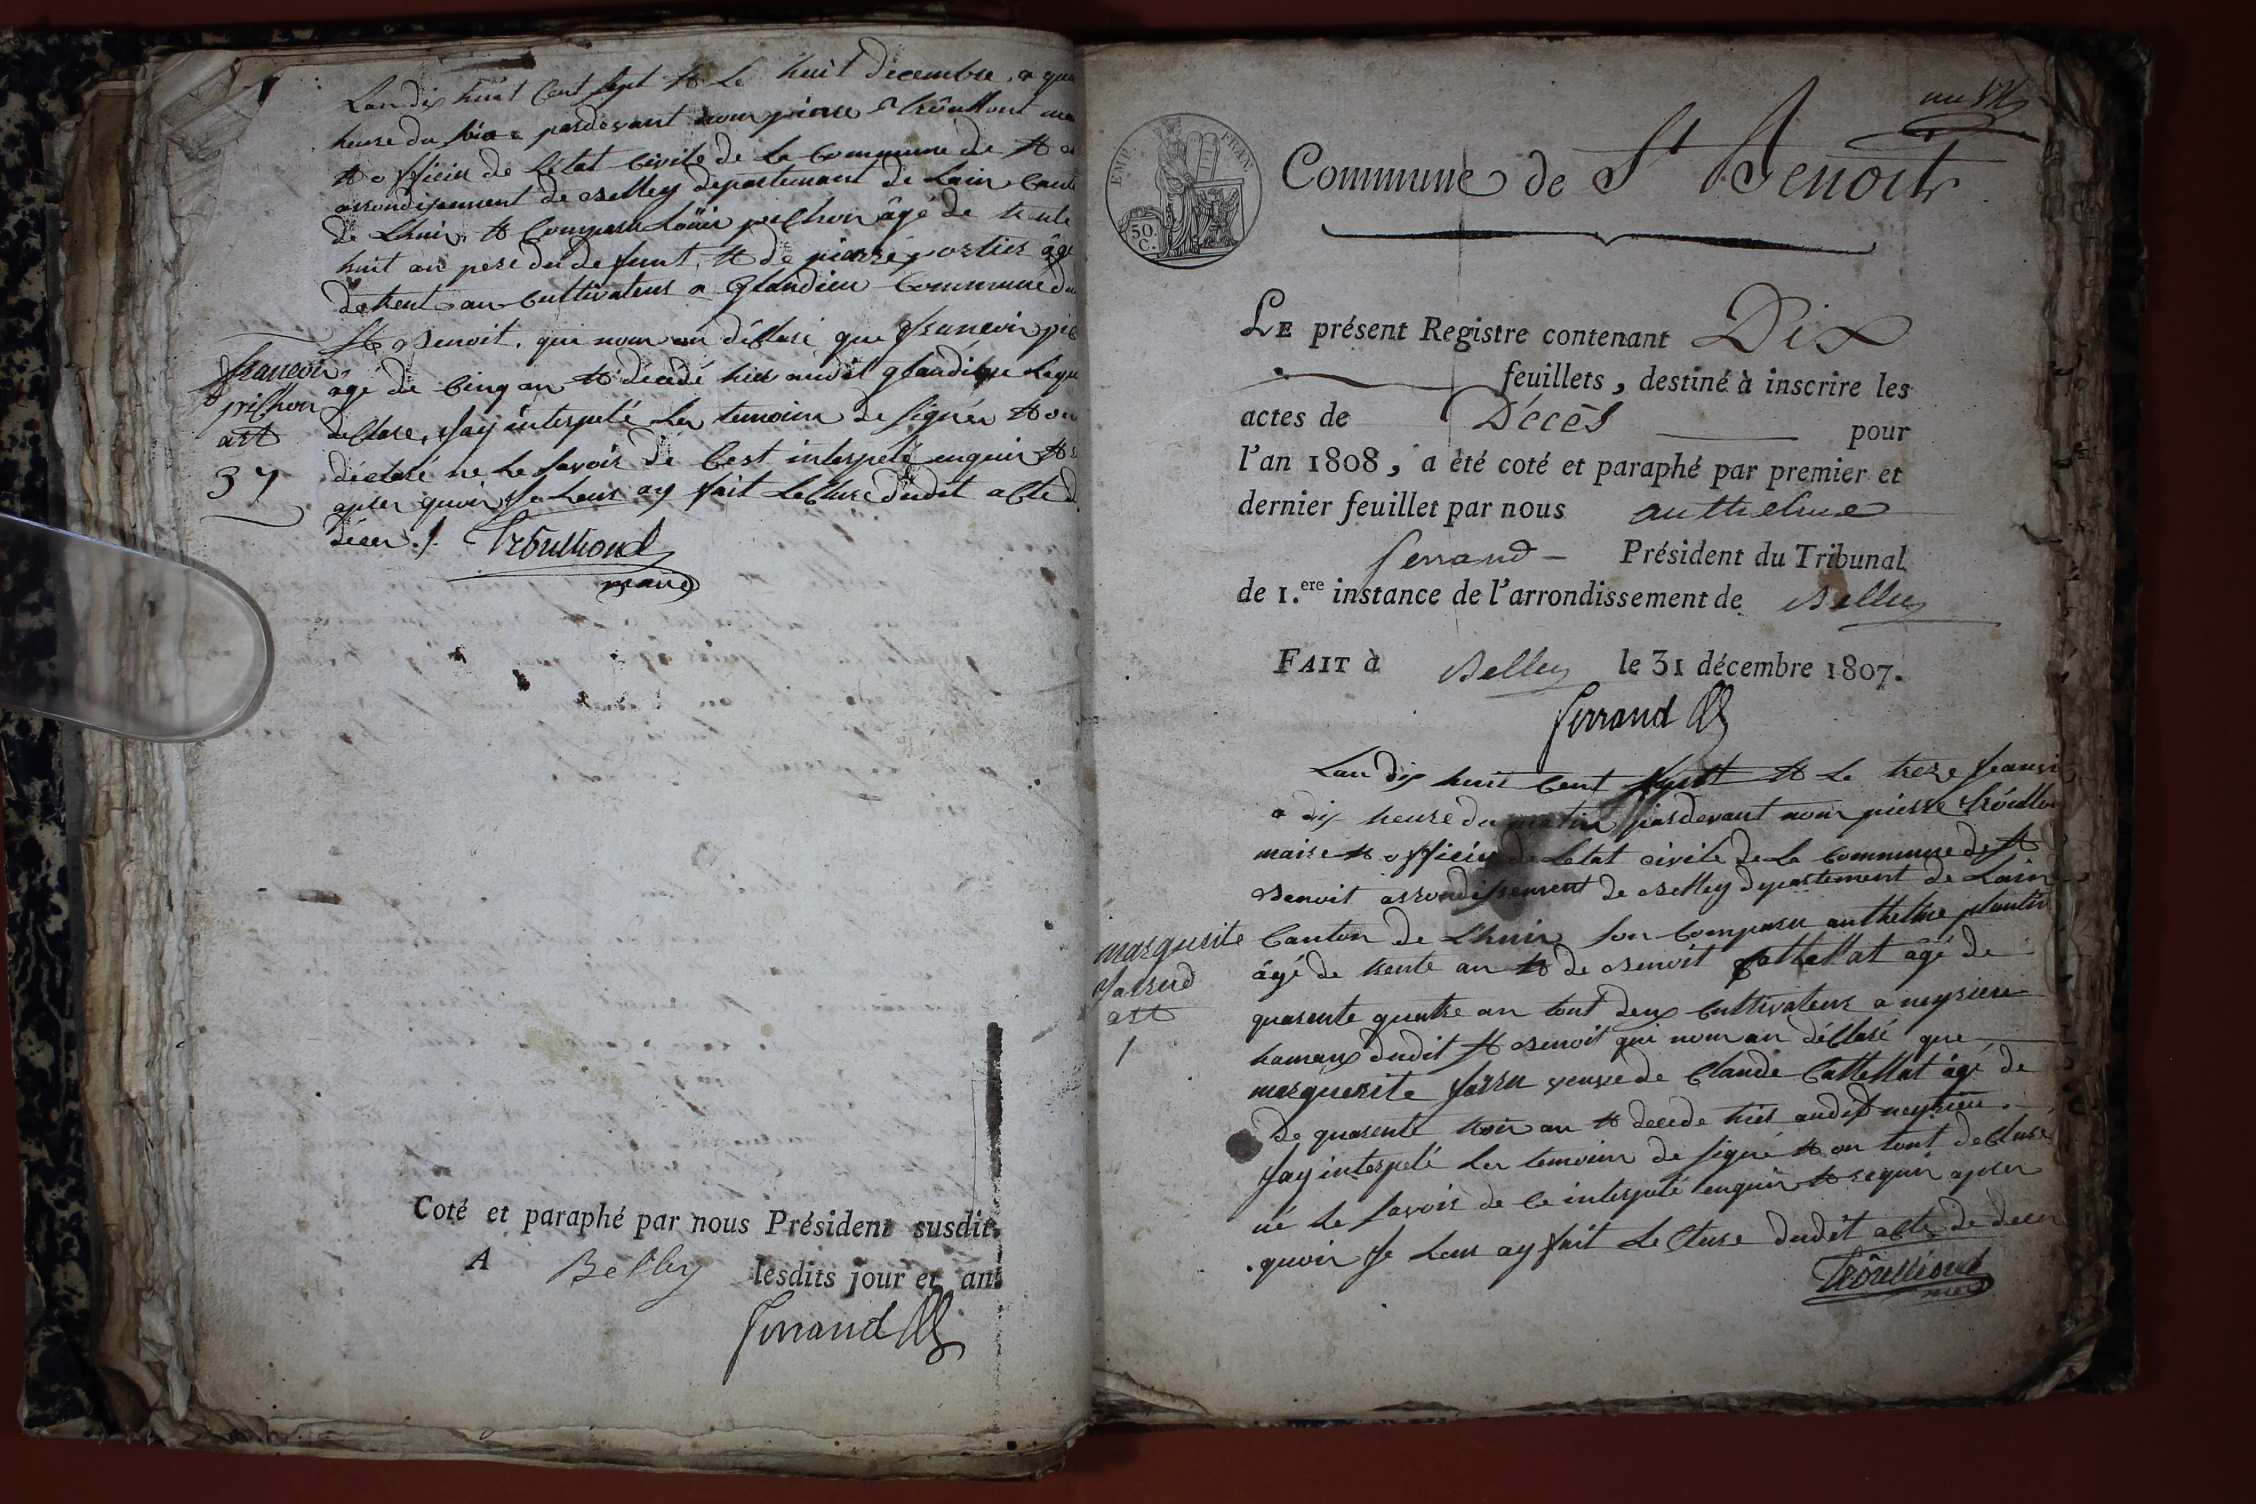 Lan dix huit Cent sept & Le huit decembre, a qua
heure du soir pardevant nous pierre Trôulliont ma
& officier de Letat Civile de La Commune de St
arrondissement de Belley departemant de Lain Cant
de Lhuis, & Comparu Loüis pichon âgé de trente
huit an pere du defunt, & de pierre portier âgé
de trent an Cultivateur a Glandieu Commune du
St Benoit, qui nous on déClaré que francois pic
agé de Cinq an & décédé hier audit glandieu Lequ
declare, Jay interpelé Les temoins de signér & on
déclaré ne Le savoir de Cest interpelé enquis &
apres quois Je Leur ay fait Lecture dudit acte d
déces ./.
Trôulliond
maire
francois
pichon
art
37
Coté et paraphé par nous Président susdit.
A Belley lesdits jour et an.
ferrand
un
EMP. FRAN.
50 C.
Commune de St Benoit
LE présent Registre contenant Dix
feuillets, destiné à inscrire les
actes de Décès pour
l'an 1808, a été coté et paraphé par premier et
dernier feuillet par nous anthelme
ferrand Président du Tribunal
de 1.ere instance de l'arrondissement de Belley
FAIT à Belley le 31 décembre 1807.
ferrand
Lan dix huit Cent huit & Le treze Janvie
a dix heure du matin pardevant nous pierre Trôullion
maire & officier de Letat civile de La Commune de St
Benoit arrondissement de Belley departement de Lain
Canton de Lhuis son Comparu anthelme plantin
âgé de trente an & de Benoit Cattellat âgé de
quarente quatre an tout deux Cultivateur a neyrieu
hameux dudit St Benoit qui nous on déClaré que
marguerite Jarru veuve de Claude Cattellat âgé de
de quarente trois an & decede hier audit neyrieu.
Jay interpelé Les temoins de signé & on tout declaré
né Le savoir de Ce interpelé enquis & requis apres
quois Je Leur ay fait Lecture dudit acte de deces
Trôulliond
marguerite
Jarrud
art
1